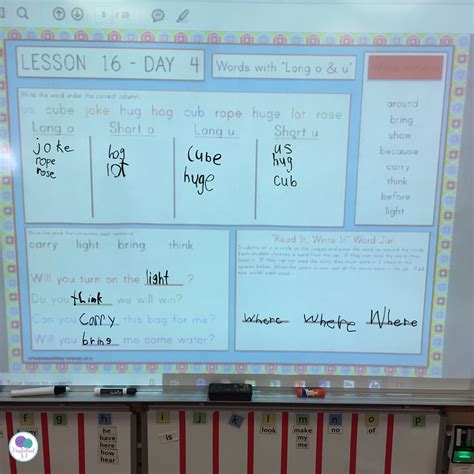 8 / 29
LESSON 16 - DAY 4
Words with "Long o & u"
Write the word under the correct column.
us cube joke hug hog cub rope huge lot rose
Long o Short o Long u Short u
joke hog cube us
rope lot huge hug
rose cub
around
bring
show
because
carry
think
before
light
carry light bring think
Will you turn on the light ?
Do you think we will win?
Can you carry this bag for me?
Will you bring me some water?
"Read It, Write It" Word Jar
Where Where Where
f g h i j k l m n o p
he
have
here
how
hear
is
look
make
my
me
no
of